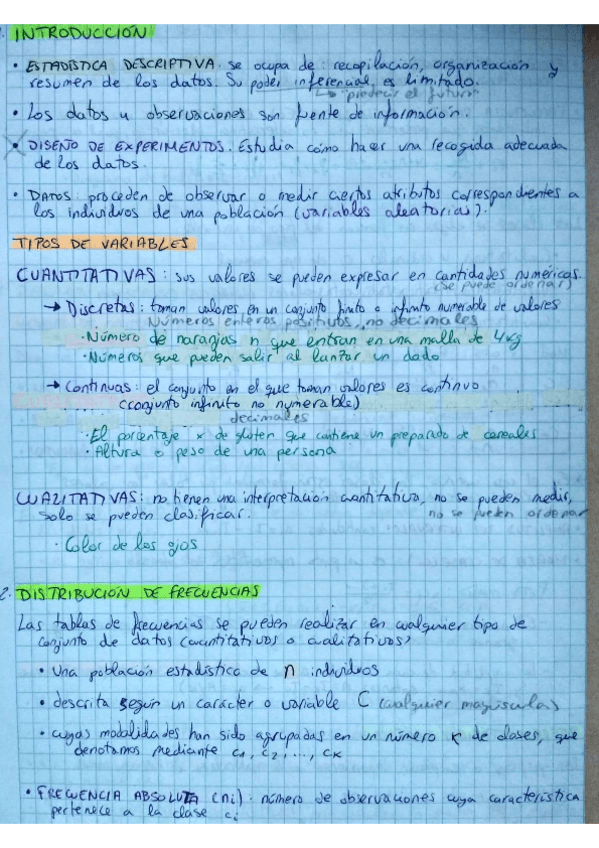 1. INTRODUCCIÓN
• ESTADÍSTICA DESCRIPTIVA. se ocupa de: recopilación, organización y
resumen de los datos. Su poder inferencial es limitado.
↳ "predecir el futuro"
• Los datos u observaciones son fuente de información.
• DISEÑO DE EXPERIMENTOS. Estudia cómo hacer una recogida adecuada
de los datos.
• DATOS: proceden de observar o medir ciertos atributos correspondientes a
los individuos de una población (variables aleatorias).
TIPOS DE VARIABLES
CUANTITATIVAS: sus valores se pueden expresar en cantidades numéricas.
(se puede ordenar)
→ Discretas: toman valores en un conjunto finito o infinito numerable de valores
Números enteros positivos, no decimales
· Número de naranjas n que entran en una malla de 4kg
· Números que pueden salir al lanzar un dado
→ Continuas: el conjunto en el que toman valores es continuo
(conjunto infinito no numerable)
decimales
· El porcentaje x de gluten que contiene un preparado de cereales
· Altura o peso de una persona
CUALITATIVAS: no tienen una interpretación cuantitativa, no se pueden medir,
solo se pueden clasificar.
no se pueden ordenar
· Color de los ojos
2. DISTRIBUCIÓN DE FRECUENCIAS
Las tablas de frecuencias se pueden realizar en cualquier tipo de
conjunto de datos (cuantitativos o cualitativos)
• Una población estadística de n individuos
• descrita según un carácter o variable C (cualquier mayúscula)
• cuyas modalidades han sido agrupadas en un número K de clases, que
denotamos mediante c1, c2, ..., cK
• FRECUENCIA ABSOLUTA (ni): número de observaciones cuya característica
pertenece a la clase ci